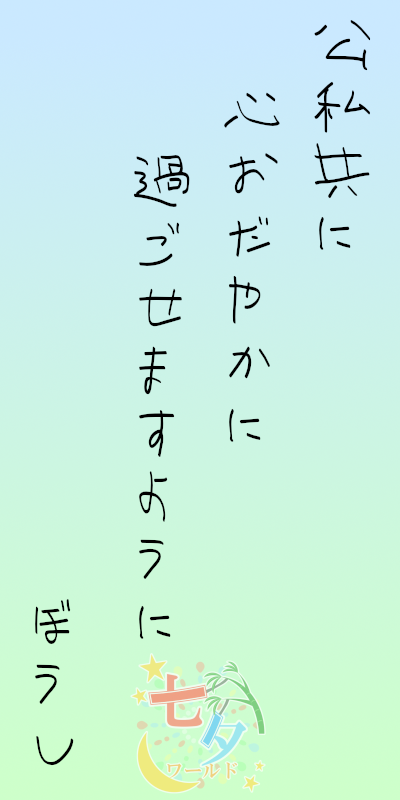 公私共に
心おだやかに
過ごせますように
ぼうし
七夕
ワールド